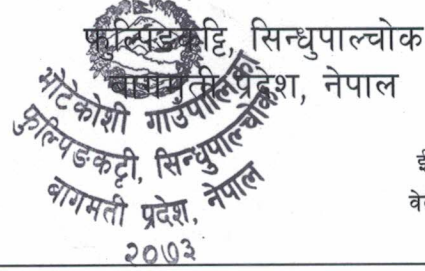 फुल्पिङकट्टि, सिन्धुपाल्चोक
बागमती प्रदेश, नेपाल
भोटेकोशी गाउँपालिका
फुल्पिङकट्टी, सिन्धुपाल्चोक
बागमती प्रदेश, नेपाल
२०७३
ई
वे